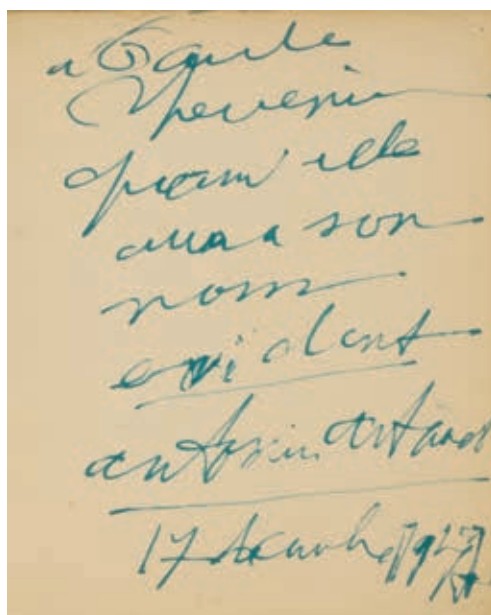 a Paule
Thevenin
quand elle
aura son
nom
evident
antonin artaud
17 decembre 1947